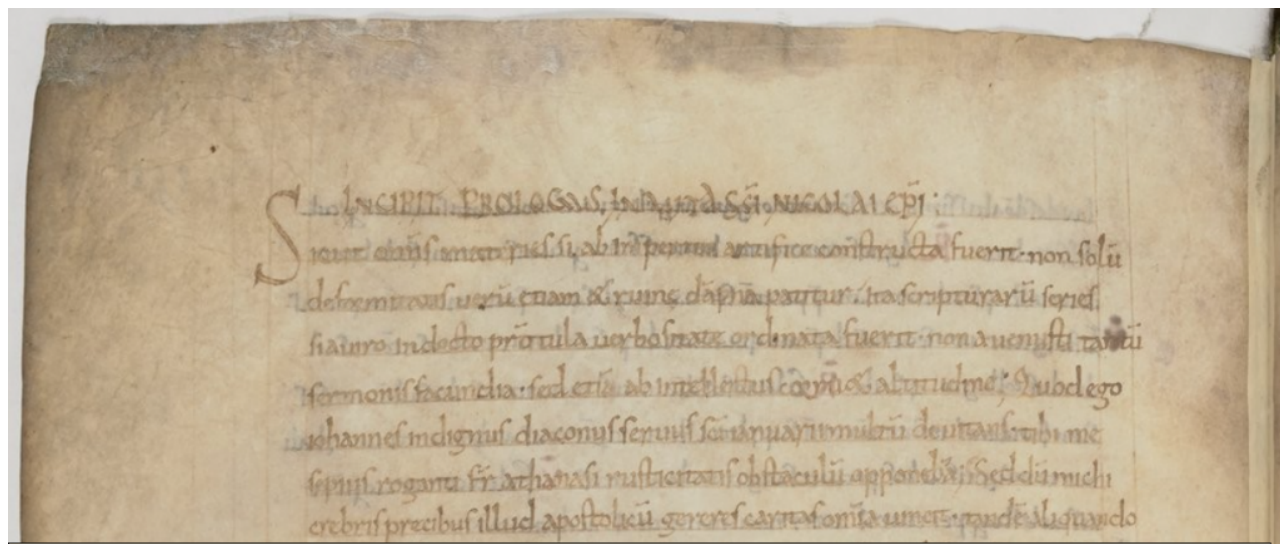 INCIPIT PROLOGUS IN VITA SCĪ NICOLAI EPĪ
Sicut omis materies si ab inperito artifice constructa fuerit · non solū
deformitatis uerū etiam & ruinę dāpna patitur · ita scripturarū series
si a uiro indocto ꝓ titula uerbositate ordinata fuerit · non a uenusti tantū
sermonis facundia · sed etiā ab intellectus & altitudine ; Quod ego
iohannes indignus diaconus seruus scī ianuarii multū deuitans tibi me
sepius roganti fr̄ athanasi rusticitatis obstaculū opponebā ; Sed dū michi
crebris precibus illud apostolicū gereres caritas omīa uincit · tandē aliquando